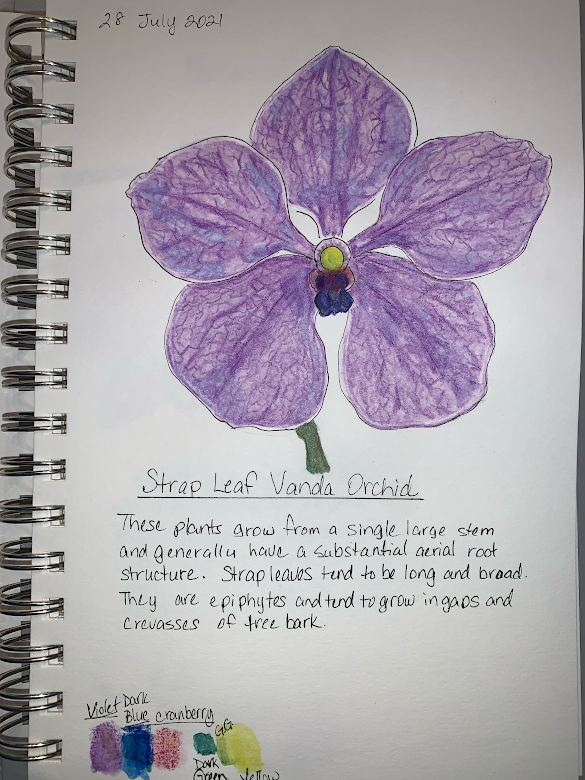 28 July 2021
Strap Leaf Vanda Orchid
These plants grow from a single large stem
and generally have a substantial aerial root
structure. Strap leaves tend to be long and broad.
They are epiphytes and tend to grow in gaps and
crevasses of tree bark.
Violet Dark
Blue cranberry
GG
Dark
Green Yellow